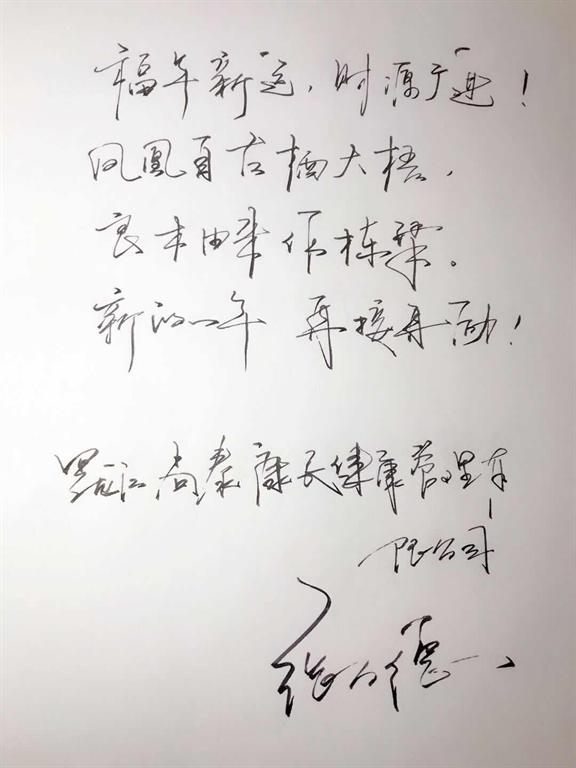 福年新运，财源广进！
凤凰自古栖大梧，
良木由来作栋梁。
新的一年 再接再励！
黑龙江尚泰康民健康管理有
限公司
张